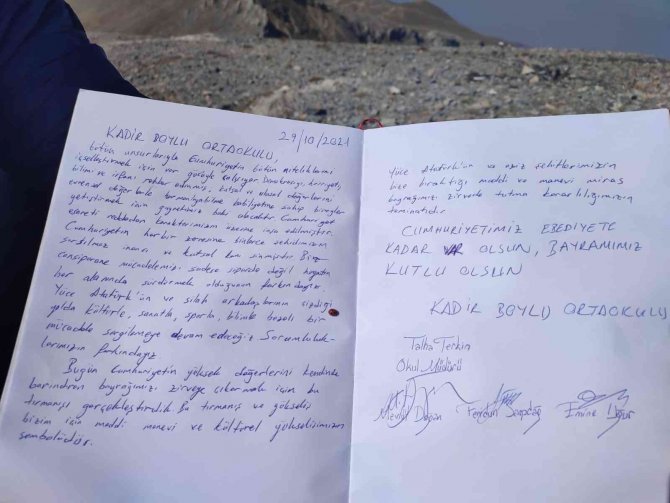 29/10/2021
KADİR BOYLU ORTAOKULU,
bütün unsurlarıyla Cumhuriyetin bütün niteliklerini
içselleştirmek için var gücüyle çalışıyor. Demokrasiyi, hürriyeti,
bilimi ve irfanı rehber edinmiş, kutsal ve ulusal değerlerini
evrensel değerlerle kabiliyetine sahip bireyler
yetiştirmek için gayretimiz baki olacaktır. Cumhuriyet
esareti reddeden karakterimizin üzerine inşa edilmiştir.
Cumhuriyetin her bir zerresine binlerce şehidimizin
sarsılmaz inancı ve kutsal kanı sinmiştir. Biz
mücadelemizi sadece sporda değil hayatın
her alanında sürdürmekte olduğunun farkındayız.
Yüce Atatürk'ün ve silah arkadaşlarının çizdiği
yolda kültürle, sanatla, sporla, bilimle bezeli bir
mücadele sergilemeye devam edeceğiz Sorumluluk-
larımızın farkındayız.
Bugün Cumhuriyetin yüksek değerlerini kendinde
barındıran bayrağımızı zirveye çıkarmak için bu
tırmanışı gerçekleştirdik. Bu tırmanış ve yükseliş
bizim için maddi manevi ve kültürel yükselişimizin
sembolüdür.
Yüce Atatürk'ün ve aziz şehitlerimizin
bize bıraktığı maddi ve manevi miras
bayrağımızı zirvede tutma kararlılığımızın
teminatıdır.
CUMHURİYETİMİZ EBEDİYETE
KADAR VAR OLSUN, BAYRAMIMIZ
KUTLU OLSUN
KADİR BOYLU ORTAOKULU
Talha Terkin
Okul Müdürü
Mevlüt Doğan Feridun Seçdağ Emine Uğur